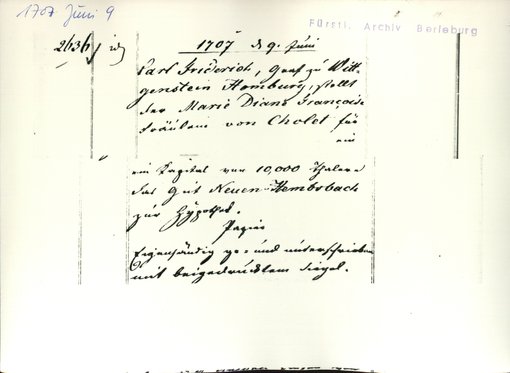 1707 Juni 9
Fürstl. Archiv Berleburg
2636
1707 d 9. Juni
Carl Friderich, Graf zu Witt-
genstein Homburg, stellt
der Marie Diane Françoise
Fräulein von Cholet für
ein
ein Kapital von 10,000 Thalern
das Gut Neuen-Hembsbach
zur Hypothek.
Papier
Eigenhändig ge- und unterschrieben
mit beigedrucktem Siegel.